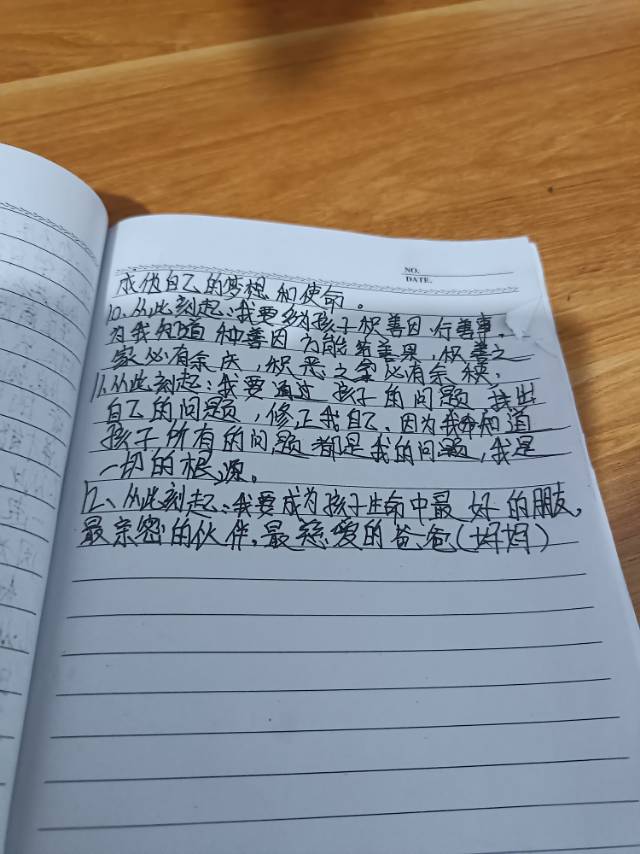 NO.
DATE.
成他自己的梦想和使命。
10.从此刻起:我要多为孩子积善因,行善事,
为我知道种善因方能结善果,积善之
家必有余庆,积恶之家必有余殃,
11.从此刻起:我要通过孩子的问题 找出
自己的问题,修正我自己、因为我知道
孩子所有的问题都是我的问题,我是
一切的根源。
12、从此刻起:我要成为孩子生命中最好的朋友,
最亲密的伙伴,最慈爱的爸爸(妈妈)